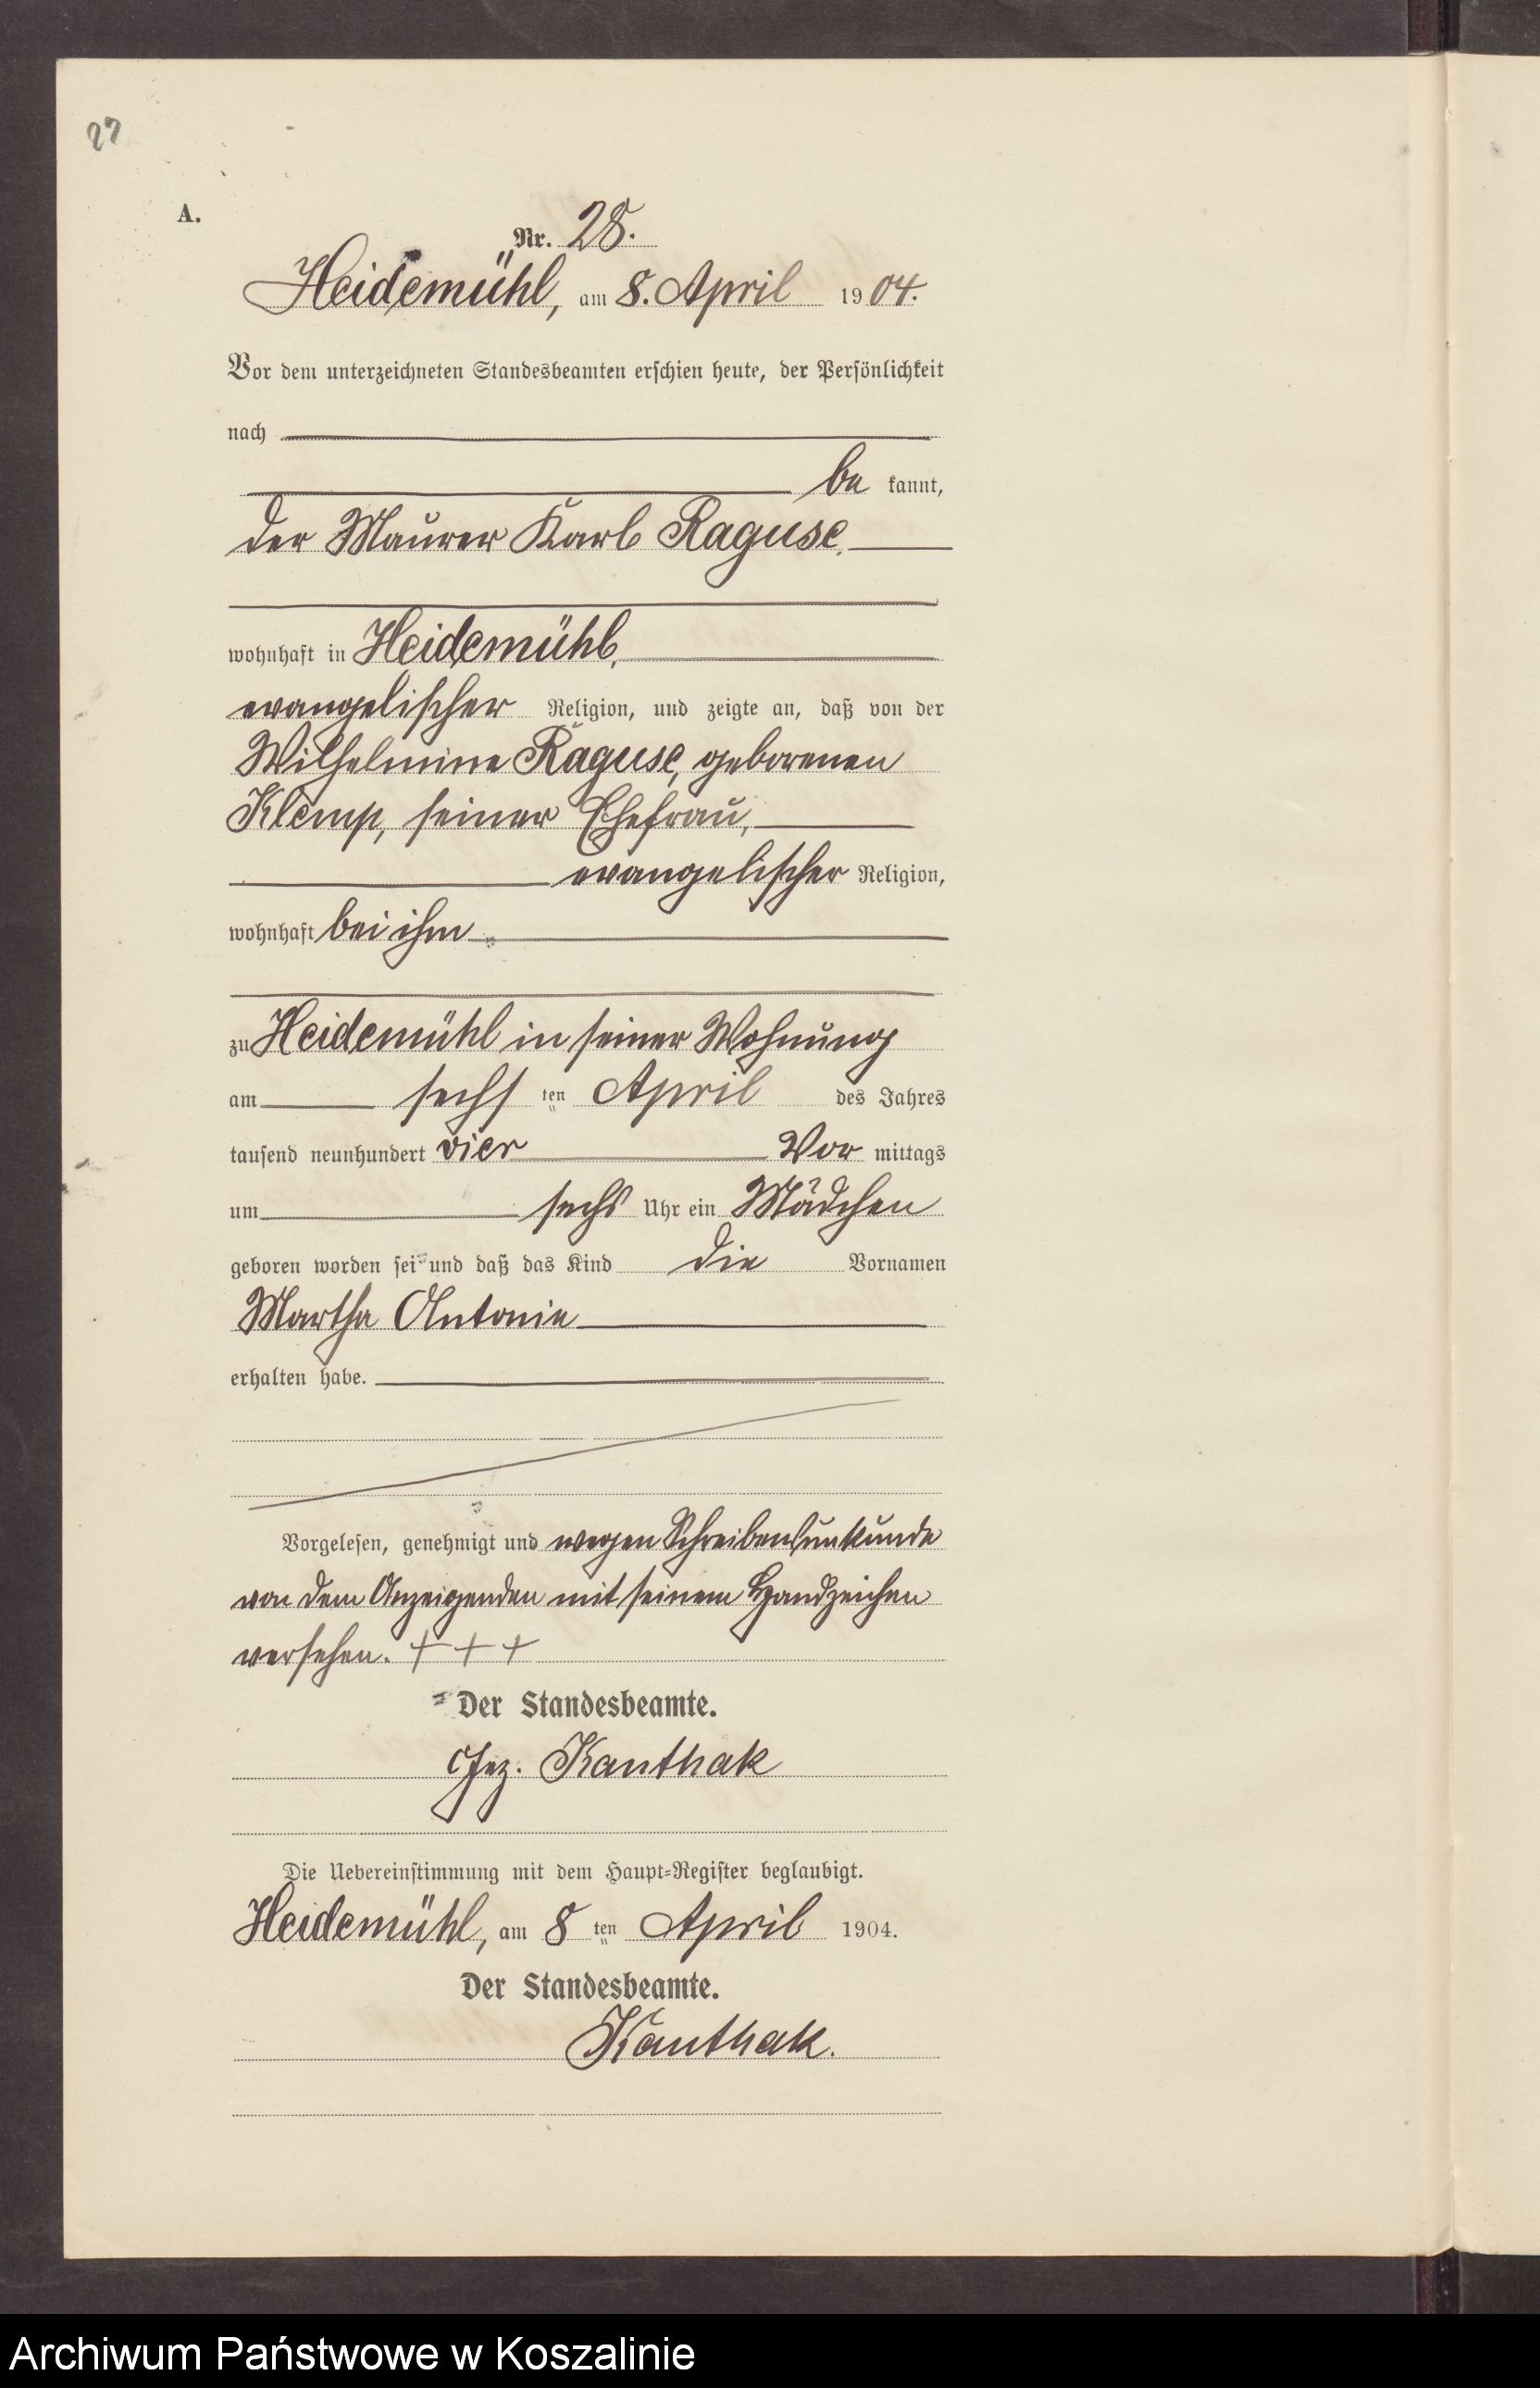 27
A.
Nr. 28.
Heidemühl, am 8. April 1904.
Vor dem unterzeichneten Standesbeamten erschien heute, der Persönlichkeit
nach
be kannt,
der Maurer Karl Raguse,
wohnhaft in Heidemühl,
evangelischer Religion, und zeigte an, daß von der
Wilhelmine Raguse, geborenen
Klemp, seiner Ehefrau,
evangelischer Religion,
wohnhaft bei ihm
zu Heidemühl in seiner Wohnung
am sechs ten April des Jahres
tausend neunhundert vier Vor mittags
um sechs Uhr ein Mädchen
geboren worden sei und daß das Kind die Vornamen
Martha Antonie
erhalten habe.
Vorgelesen, genehmigt und wegen Schreibensunkunde
von dem Anzeigenden mit seinem Handzeichen
versehen. + + +
Der Standesbeamte.
Gez. Kanthak
Die Uebereinstimmung mit dem Haupt-Register beglaubigt.
Heidemühl, am 8 ten April 1904.
Der Standesbeamte.
Kanthak.
Archiwum Państwowe w Koszalinie